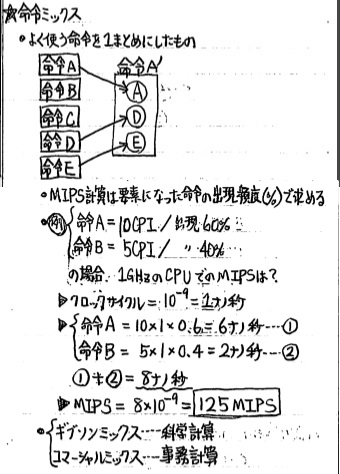 ★命令ミックス
・よく使う命令を1まとめにしたもの
命令A 命令A'
命令B A
命令C
命令D D
命令E E
・MIPS計算は要素になった命令の出現頻度(%)で求める
・例 命令A=10CPI/出現60%
命令B= 5CPI/ 〃 40%
の場合、1GHzのCPUでのMIPSは?
▷クロックサイクル=10⁻⁹=1ナノ秒
▷命令A=10×1×0.6=6ナノ秒…①
命令B= 5×1×0.4=2ナノ秒…②
①+②=8ナノ秒
▷MIPS=8×10⁻⁹=125MIPS
・ギブソンミックス…科学計算
コマーシャルミックス…事務計算